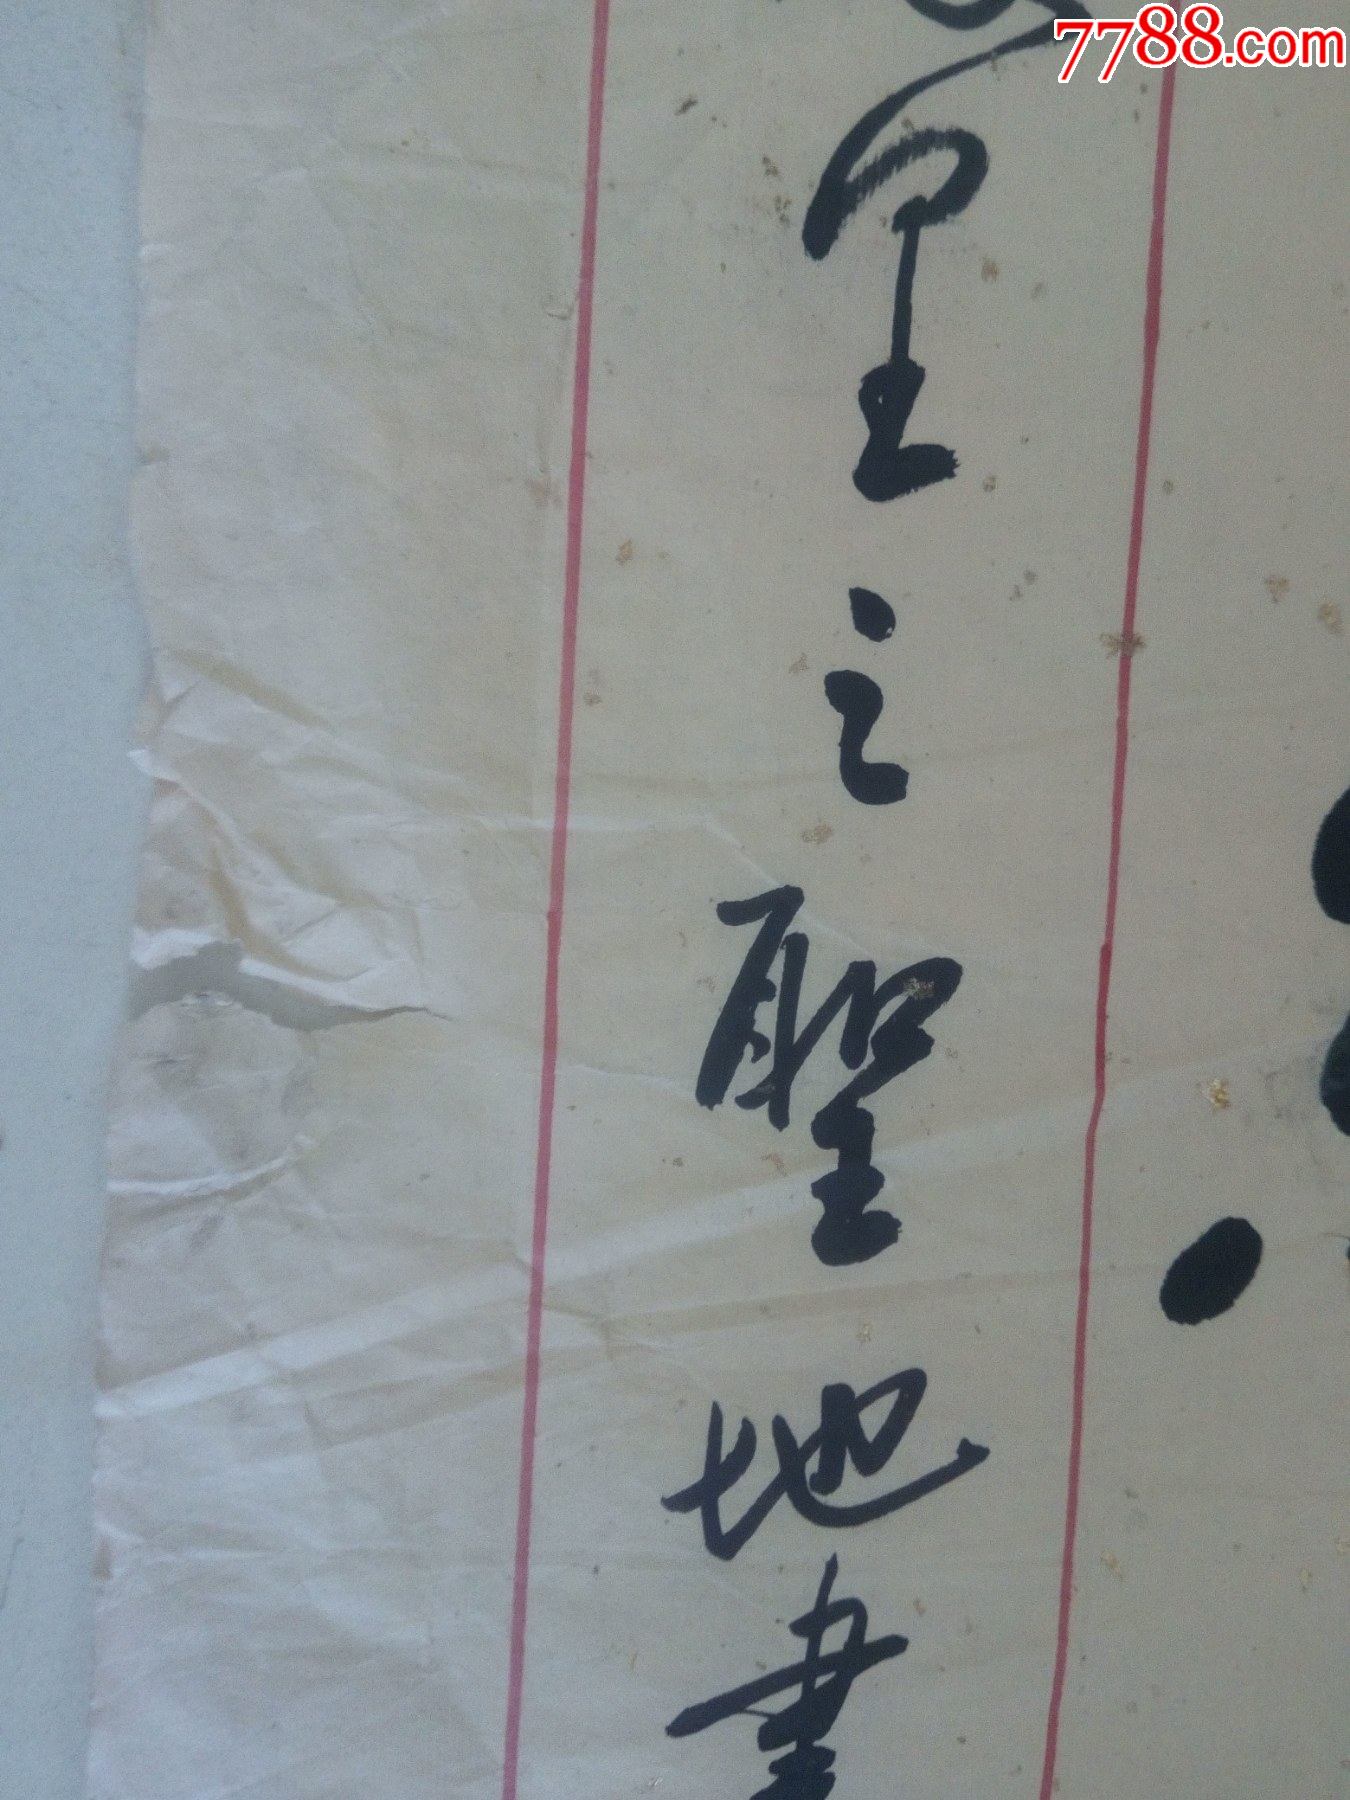 7788.com
之聖地書